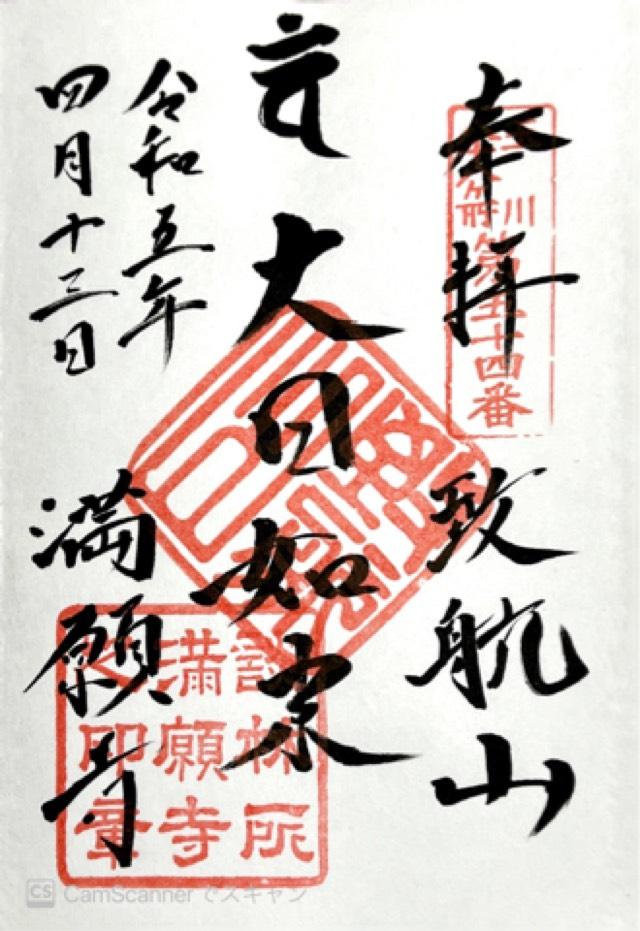 奉拝
致航山
大日如来
令和五年
四月十三日
満願寺
玉川
八十八ヶ所
第五十四番
談林所
満願寺
之印章
CS CamScanner でスキャン